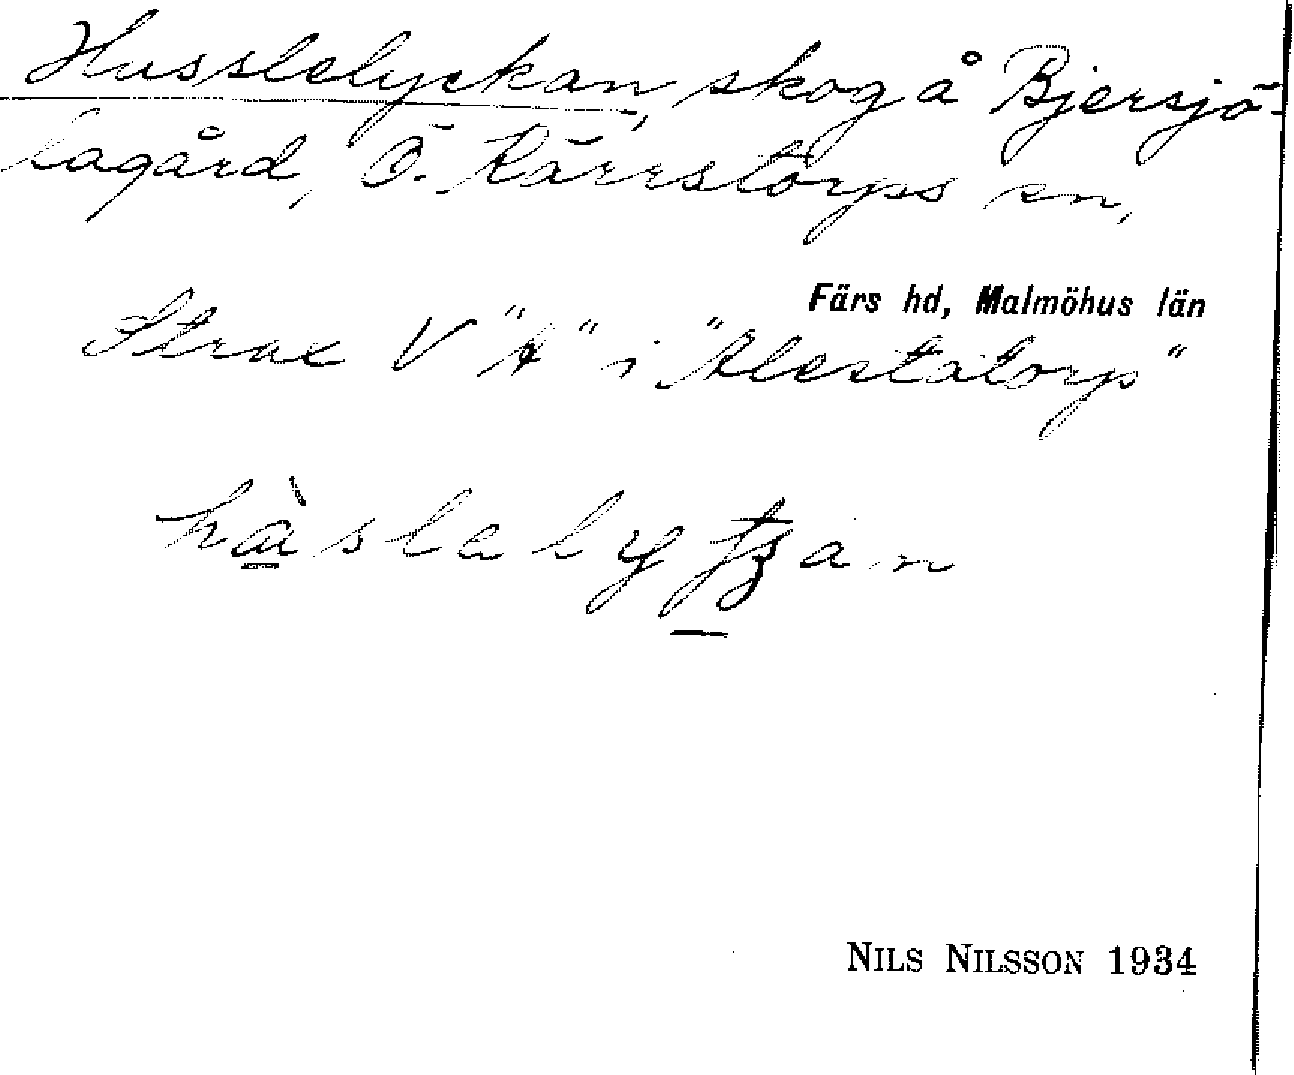 Husslelyckan, skog å Bjersjö-
lagård, Ö. Kärrstorps sn,
Färs hd, Malmöhus län
Strax V "A" i "Alestatorp"
NILS NILSSON 1934